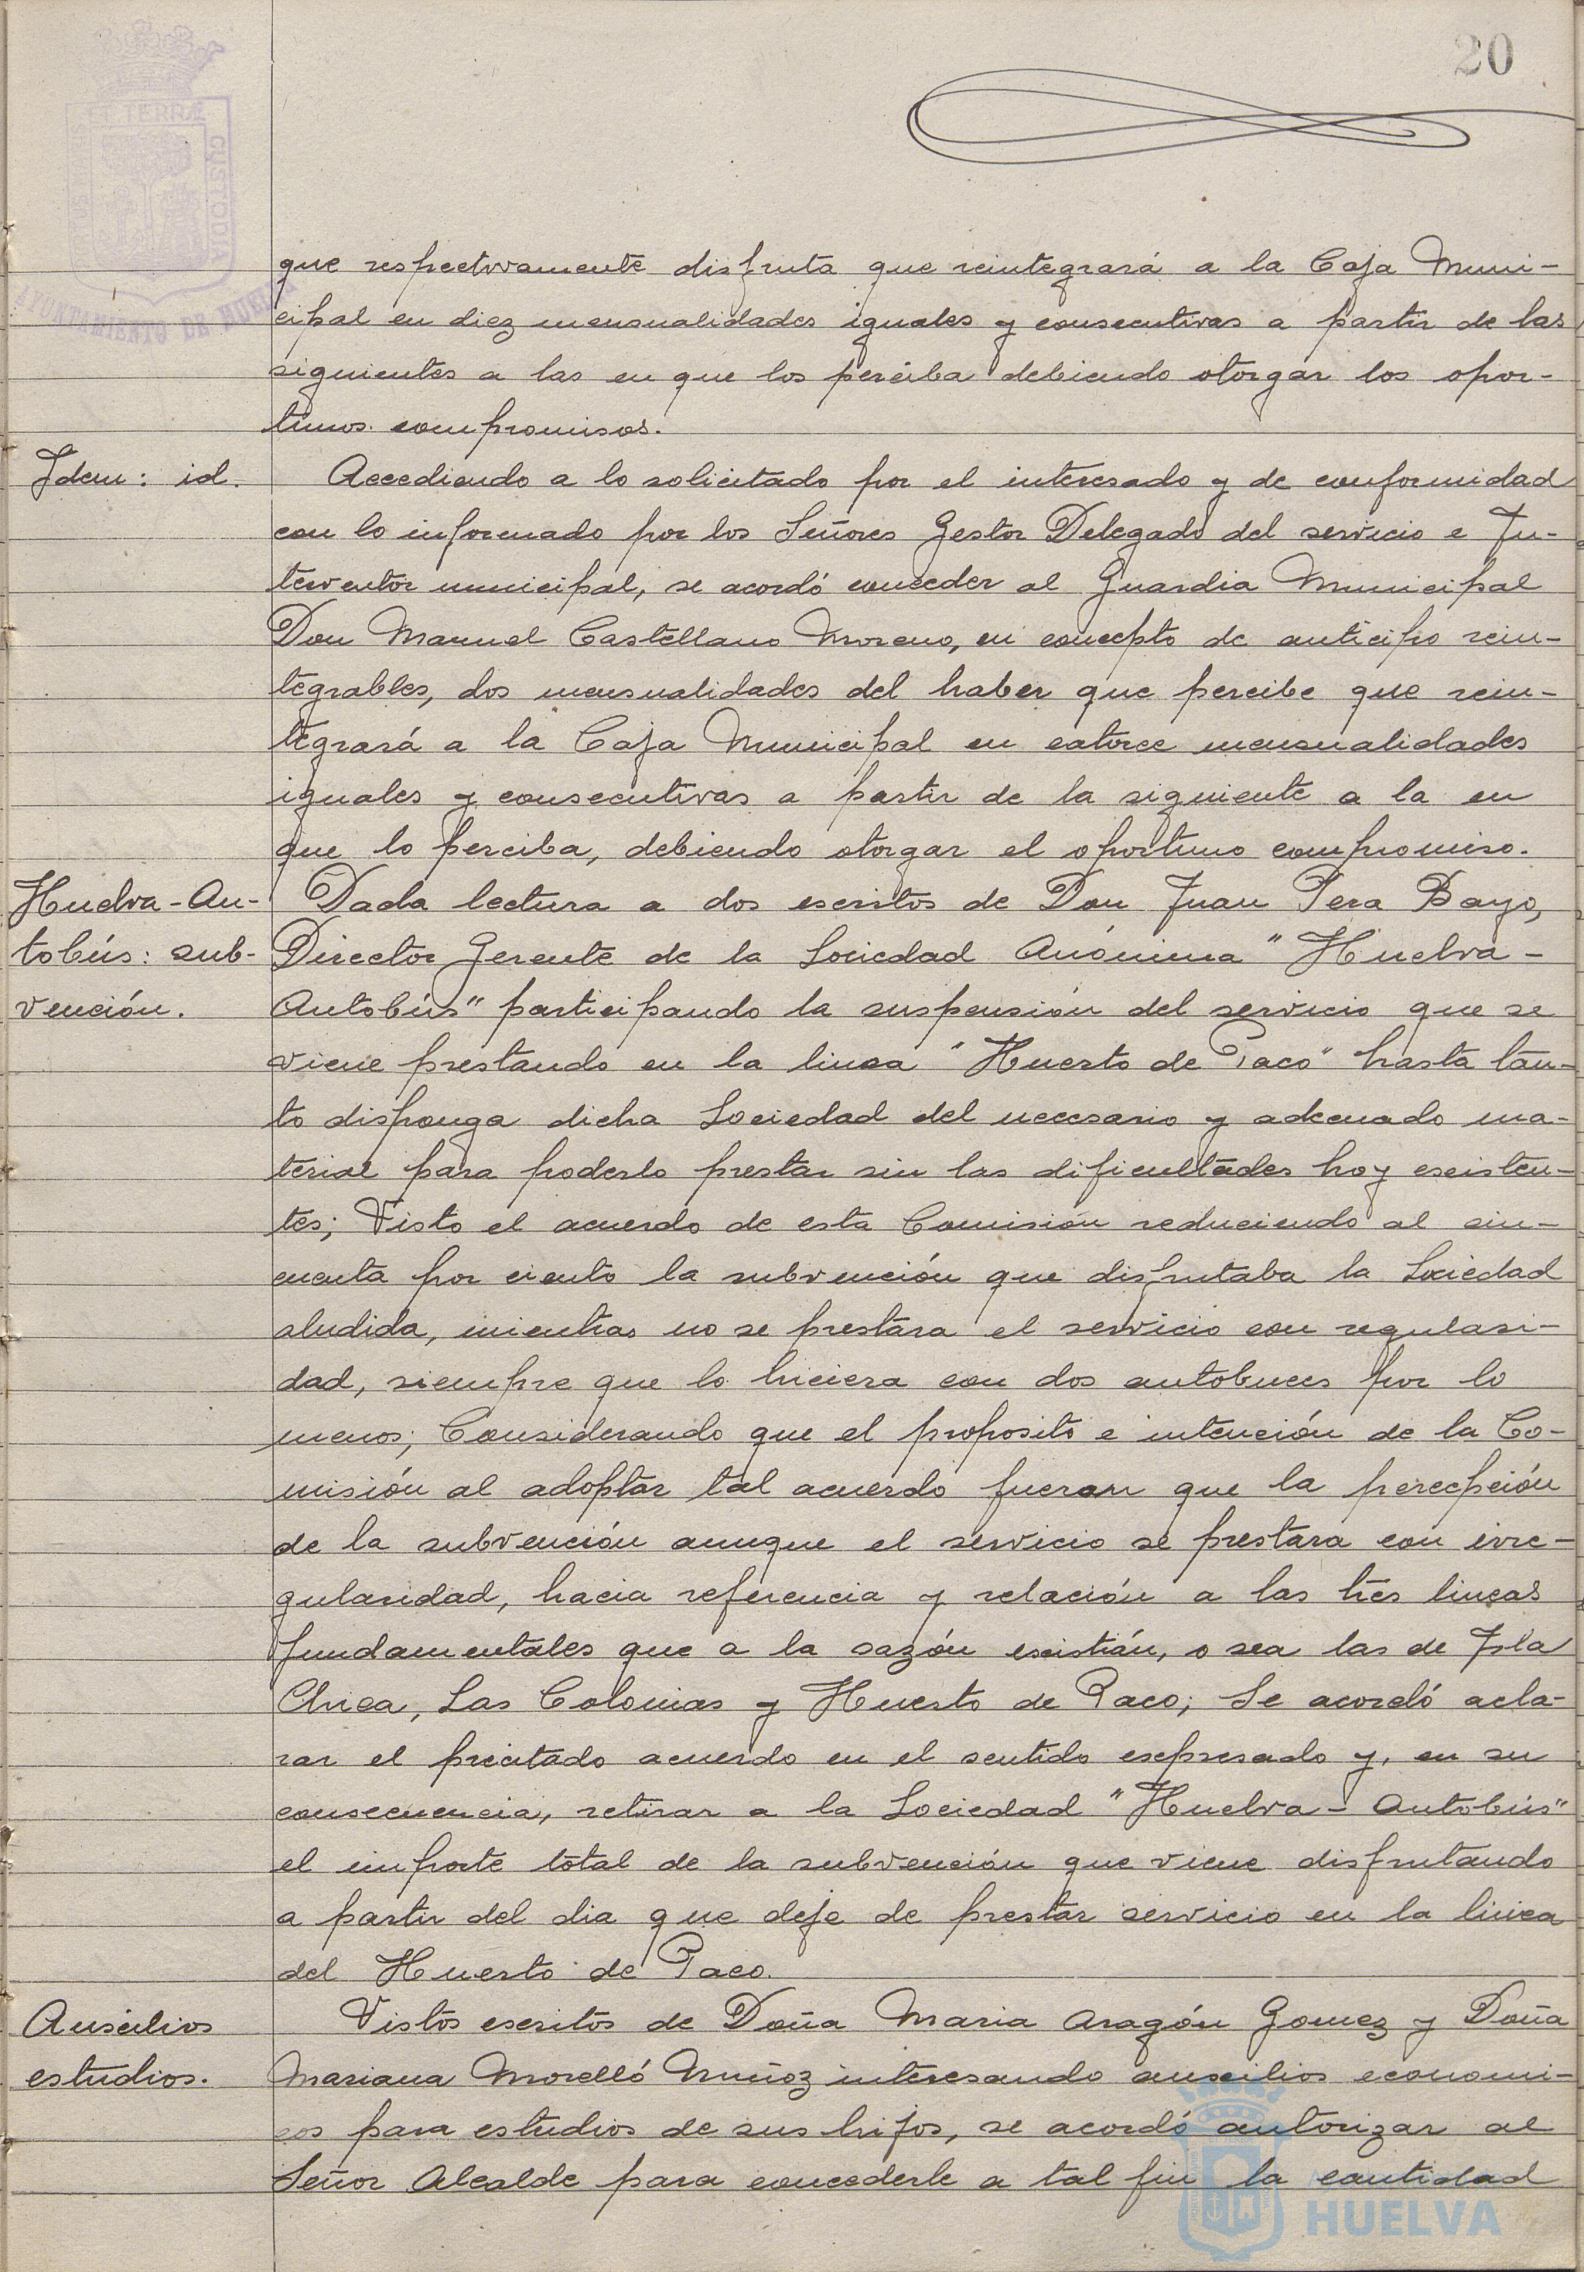 20
ET TERRÆ
CUSTODIA
AYUNTAMIENTO DE HUELVA
que respectivamente disfruta que reintegrará a la Caja Muni-
cipal en diez mensualidades iguales y consecutivas a partir de las
siguientes a las en que los perciba debiendo otorgar los opor-
tunos compromisos.
Idem: id.
Accediendo a lo solicitado por el interesado y de conformidad
con lo informado por los Señores Gestor Delegado del servicio e In-
terventor municipal, se acordó conceder al Guardia Municipal
Don Manuel Castellano Moreno, en concepto de anticipo rein-
tegrables, dos mensualidades del haber que percibe que rein-
tegrará a la Caja Municipal en catorce mensualidades
iguales y consecutivas a partir de la siguiente a la en
que lo perciba, debiendo otorgar el oportuno compromiso.
Huelva-Au-
tobús: sub-
vención.
Dada lectura a dos escritos de Don Juan Pera Bayo,
Director Gerente de la Sociedad Anónima "Huelva-
Autobús" participando la suspensión del servicio que se
viene prestando en la linea "Huerto de Paco" hasta tan-
to disponga dicha Sociedad del necesario y adecuado ma-
terial para poderlo prestar sin las dificultades hoy existen-
tes; Visto el acuerdo de esta Comisión reduciendo al cin-
cuenta por ciento la subvención que disfrutaba la Sociedad
aludida, mientras no se prestara el servicio con regulari-
dad, siempre que lo hiciera con dos autobuces por lo
menos; Considerando que el proposito e intención de la Co-
misión al adoptar tal acuerdo fueran que la percepción
de la subvención aunque el servicio se prestara con irre-
gularidad, hacia referencia y relación a las tres lineas
fundamentales que a la sazón existián, o sea las de Isla
Chica, Las Colonias y Huerto de Paco; Se acordó acla-
rar el precitado acuerdo en el sentido expresado y, en su
consecuencia, retirar a la Sociedad "Huelva-Autobús"
el importe total de la subvención que viene disfrutando
a partir del dia que deje de prestar servicio en la linea
del Huerto de Paco.
Auxilios
estudios.
Vistos escritos de Doña Maria Aragón Gomez y Doña
Mariana Morelló Muñoz interesando auxilios economi-
cos para estudios de sus hijos, se acordó autorizar al
Señor Alcalde para concederle a tal fin la cantidad
HUELVA